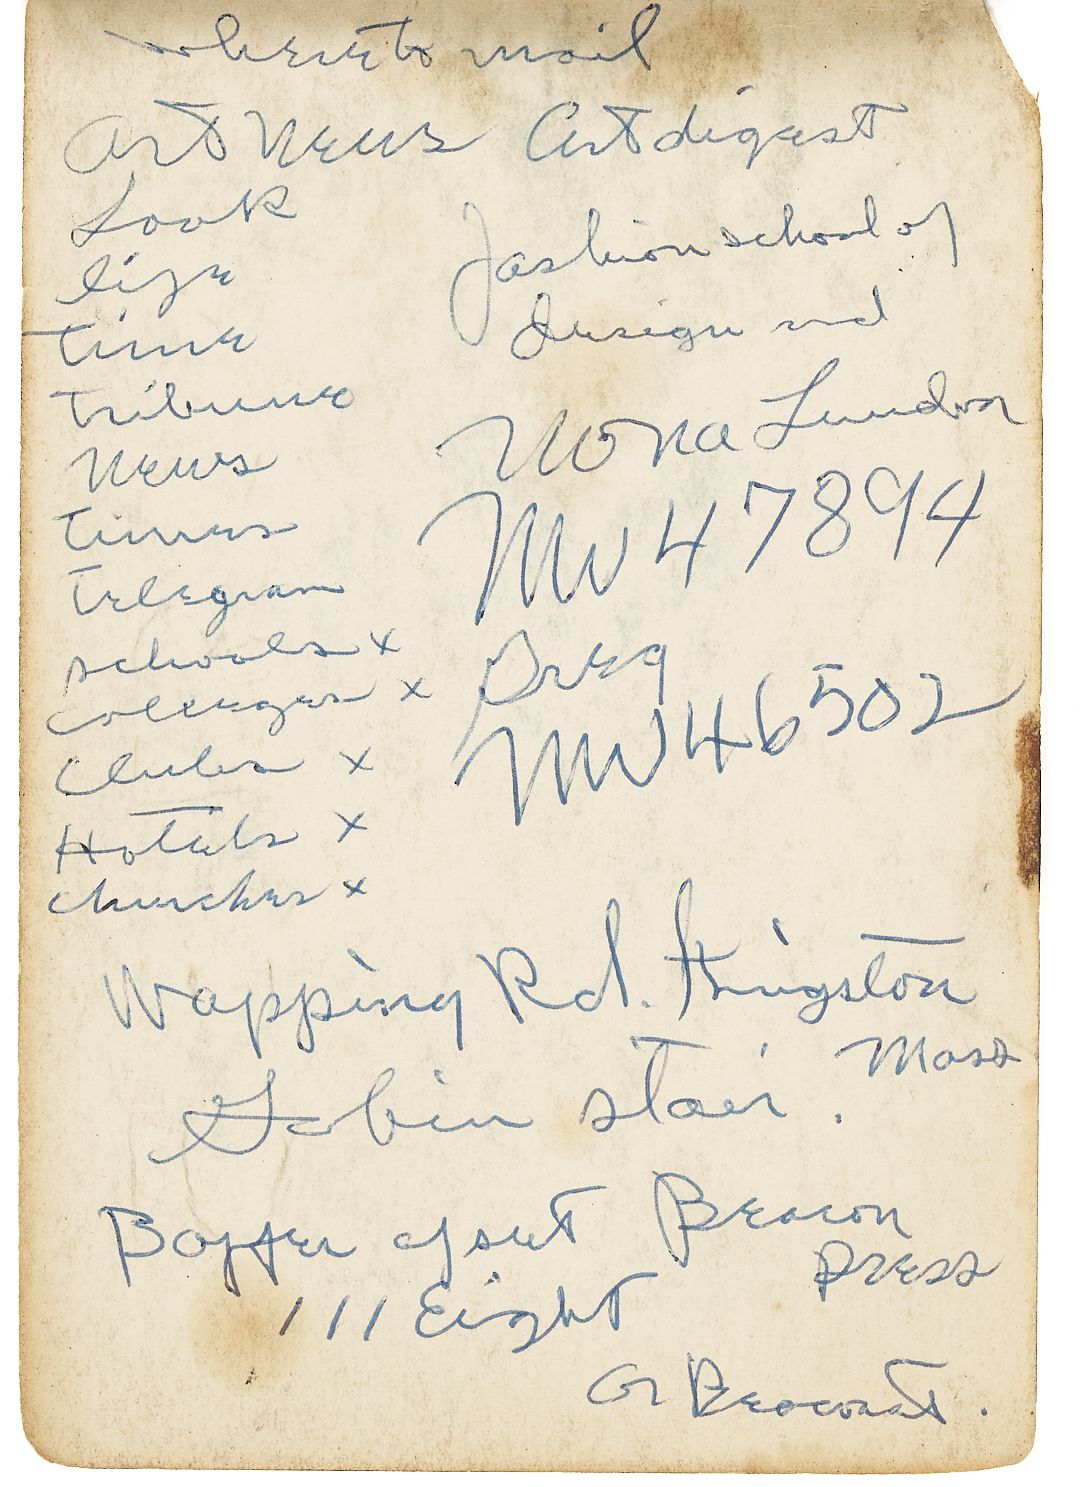 where to mail
Art News Art digest
Look
life
Time
Tribune
News
Times
Telegram
schools x
Colleges x
Clubs x
Hotels x
churches x
Fashion school of
design
Nona
MU 47894
MU 46502
Wapping Rd. Kingston
Mass
Gobin stair.
Boffer ofset Beacon
press
111 Eight
or Beacon st.